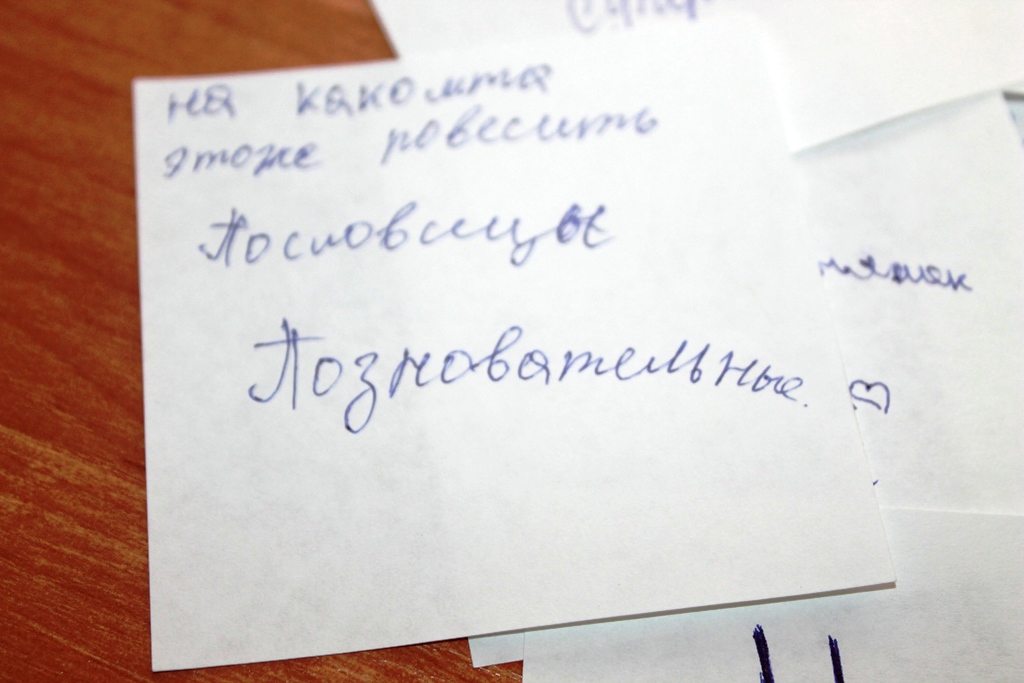 на какомта
этоже повесить
Пословицы
Позновательные.